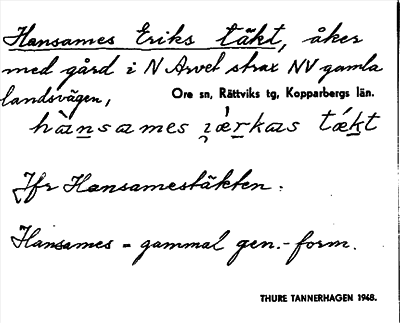 Hansames Eriks täkt, åker
med gård i N Arvet strax NV gamla
landsvägen,
Ore sn, Rättviks tg, Kopparbergs län.
hànsames i̯ǽrkas tǽkt
Jfr Hansamestäkten.
Hansames = gammal gen.-form.
THURE TANNERHAGEN 1948.